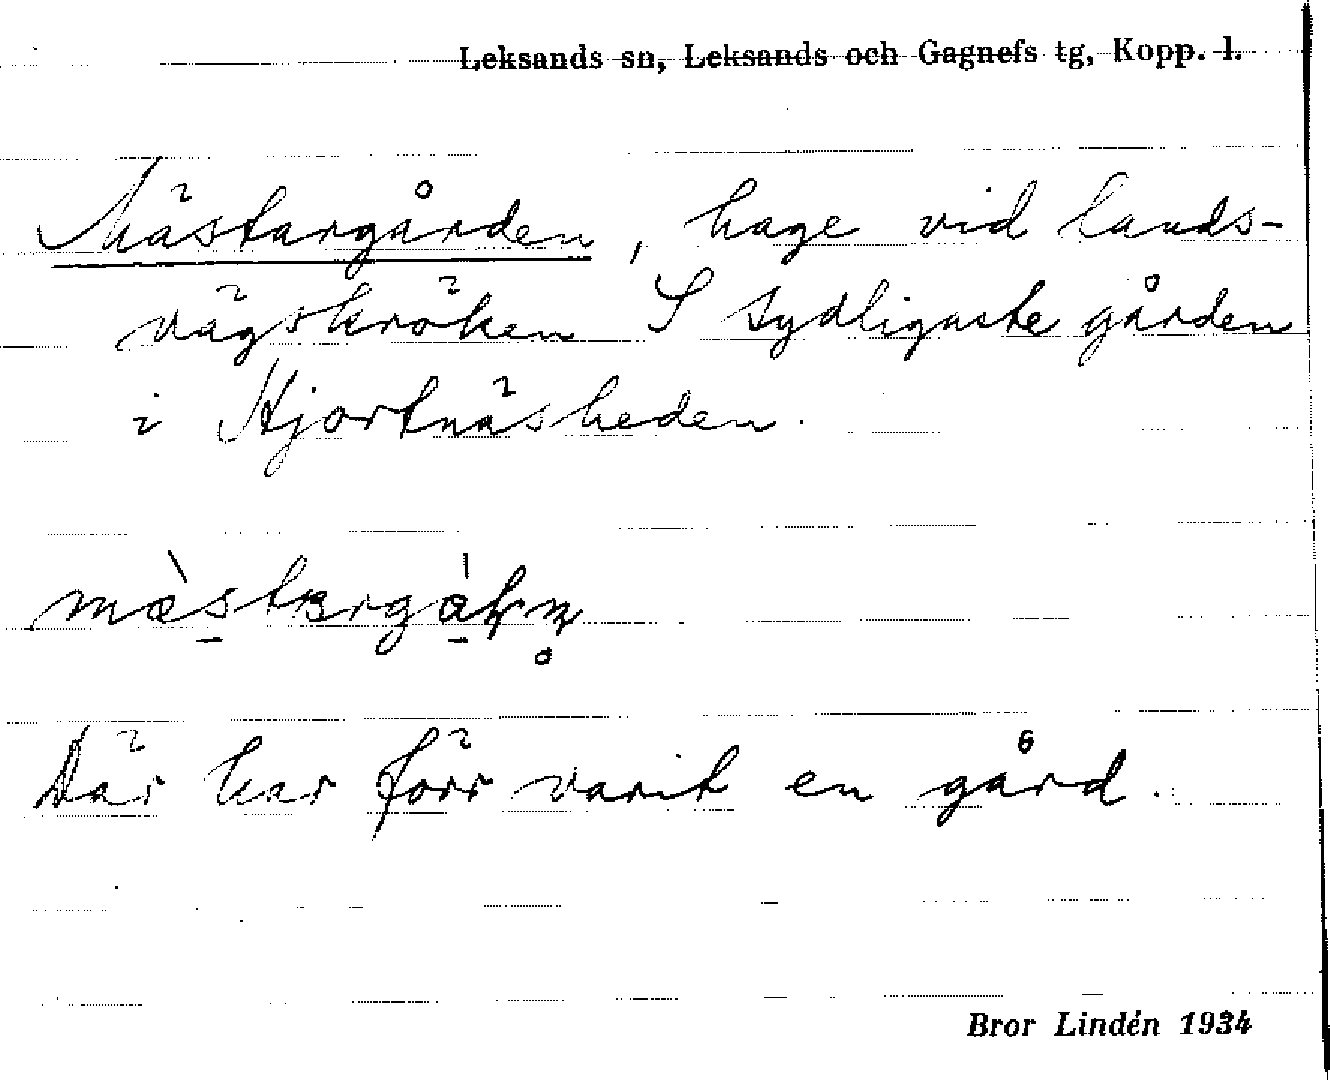 Leksands sn, Leksands och Gagnefs tg, Kopp. l.
Mästargården, hage vid lands-
vägskröken S sydligaste gården
i Hjortnäsheden.
Där har förr varit en gård.
Bror Lindén 1934